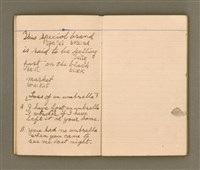 This special brand
is said to be selling
fast on the black
market
(Loss of an umbrella)
A. I have lost my umbrella
I wonder if I have
left it at your home.
B. you had no umbrella
when you came to
see me last night.